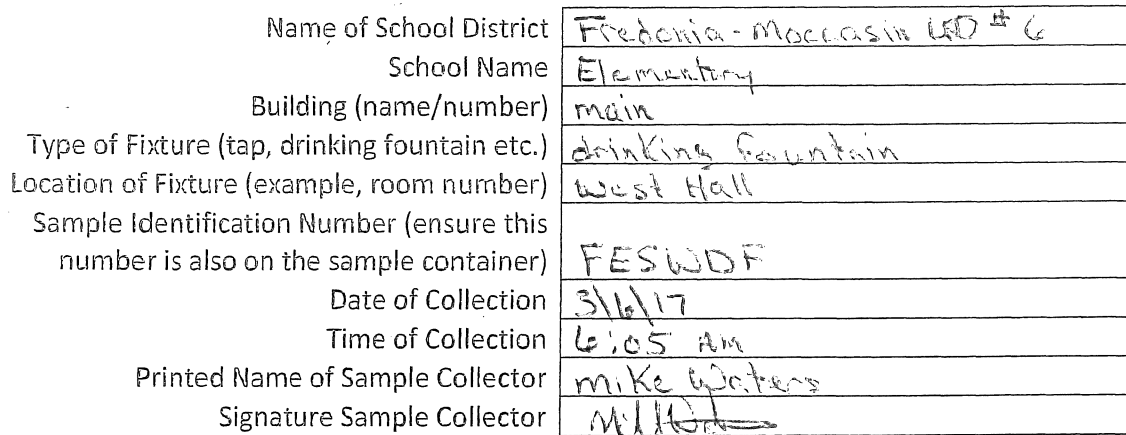 Name of School District Fredonia-Moccasin USD # 6
School Name Elementary
Building (name/number) main
Type of Fixture (tap, drinking fountain etc.) drinking fountain
Location of Fixture (example, room number) West Hall
Sample Identification Number (ensure this
number is also on the sample container) FESWDF
Date of Collection 3\6\17
Time of Collection 6:05 AM
Printed Name of Sample Collector mike Waters
Signature Sample Collector